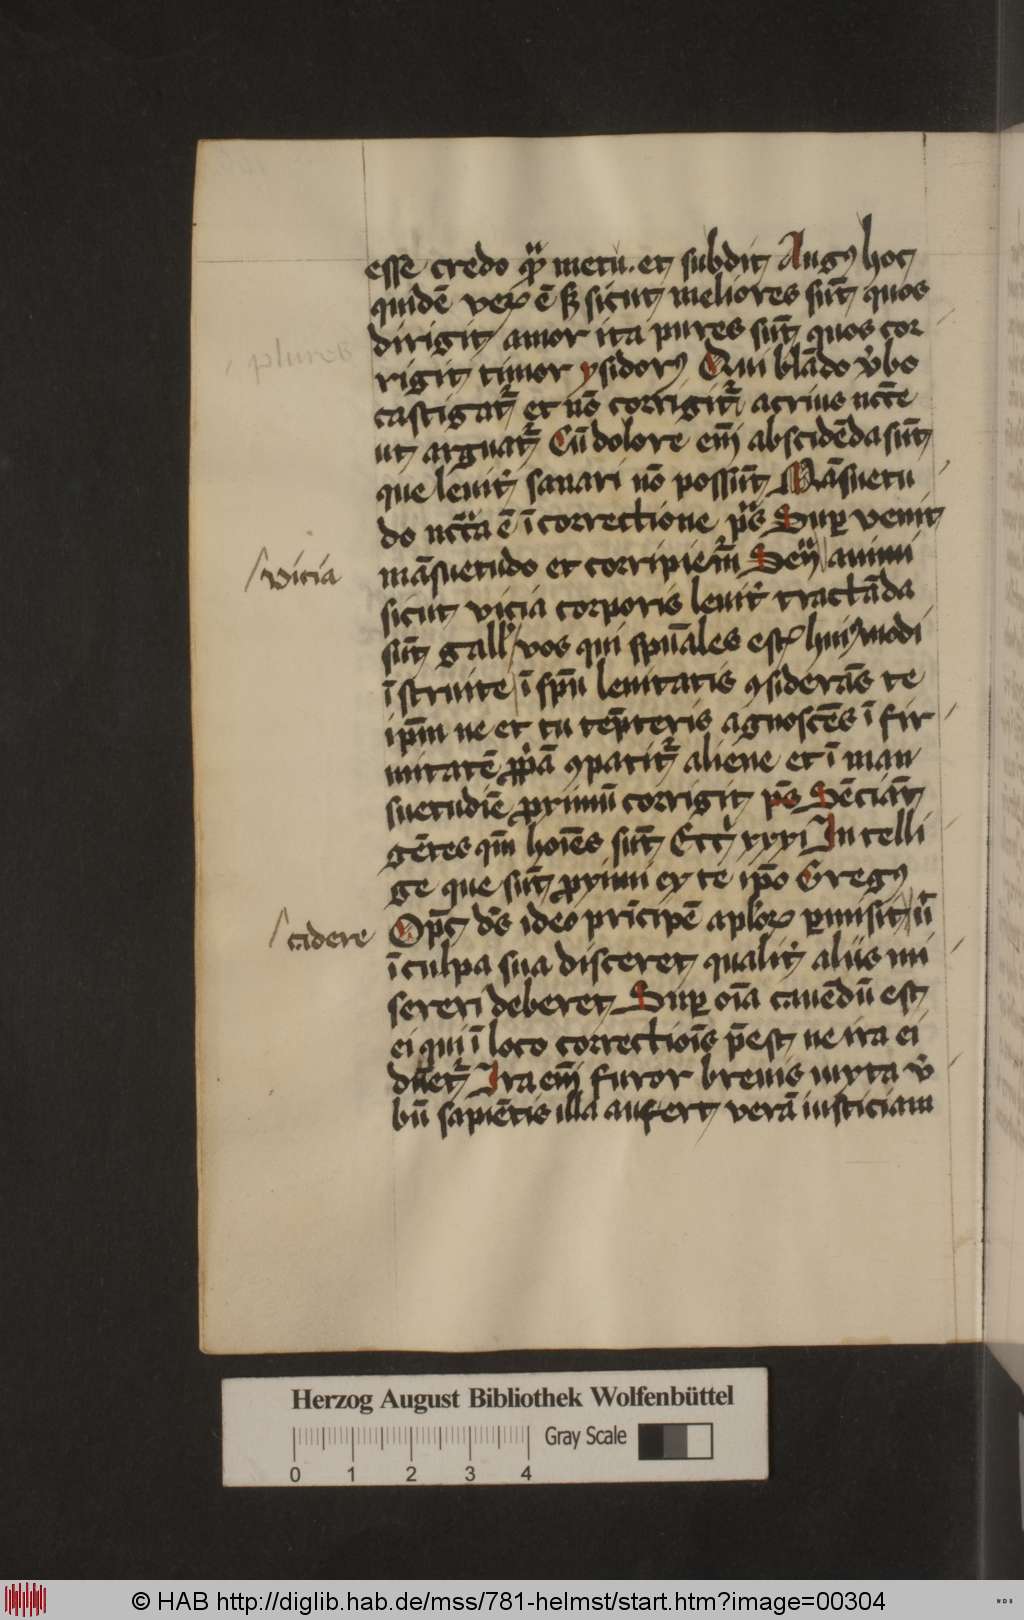 esse credo qͣm metu. et subdit Augꝰ hoc
quidē veꝝ ē sꝫ sicut meliores sūt quos
dirigit amor ita pures sūt quos cor
plures
rigit timor ysidorꝰ Qui blādo v̓bo
castigat᷑ et nō corrigit᷑ acrius nc̄cē
ut arguat᷑ Cū dolore em̄ abscidēda sūt
que leuit̓ sanari nō possūt Māsuetu
do nc̄c̄ia ē ī correctione pͥs Suꝑ venit
vicia
māsuetudo et corripiem᷑ Seͣ animi
sicut vicia corporis leuit̓ tractāda
sūt gall' vos qui spūales estꝭ huiꝰmodi
īstruite ī spū lenitatis ꝯsiderās te
ipm̄ ne et tu tēpteris agnoscēs ī fir
mitatē ꝓpͥā ꝯpatit᷑ aliene et ī man
suetudīe proximū corrigit pͣs Sēciāt
gētes qm̄ hoīes sūt Ecc̓ xxxi Intelli
ge que sūt proximi ex te ipō Gregꝰ
cadere
Op̄c dn̄s ideo prīcipē aplo̅ꝝ ꝑmisit ut
ī culpa sua disceret qualit̓ aliis mi
sereri deberet Suꝑ oīa cauēdū est
ei qui ī loco correctiōis p̄est ne ira ei
dn̄et᷑ Ira em̄ furor breuis iuxta v̓
bū sapiētis illa aufert verā iusticiam
Herzog August Bibliothek Wolfenbüttel
Gray Scale
0 1 2 3 4
© HAB http://diglib.hab.de/mss/781-helmst/start.htm?image=00304